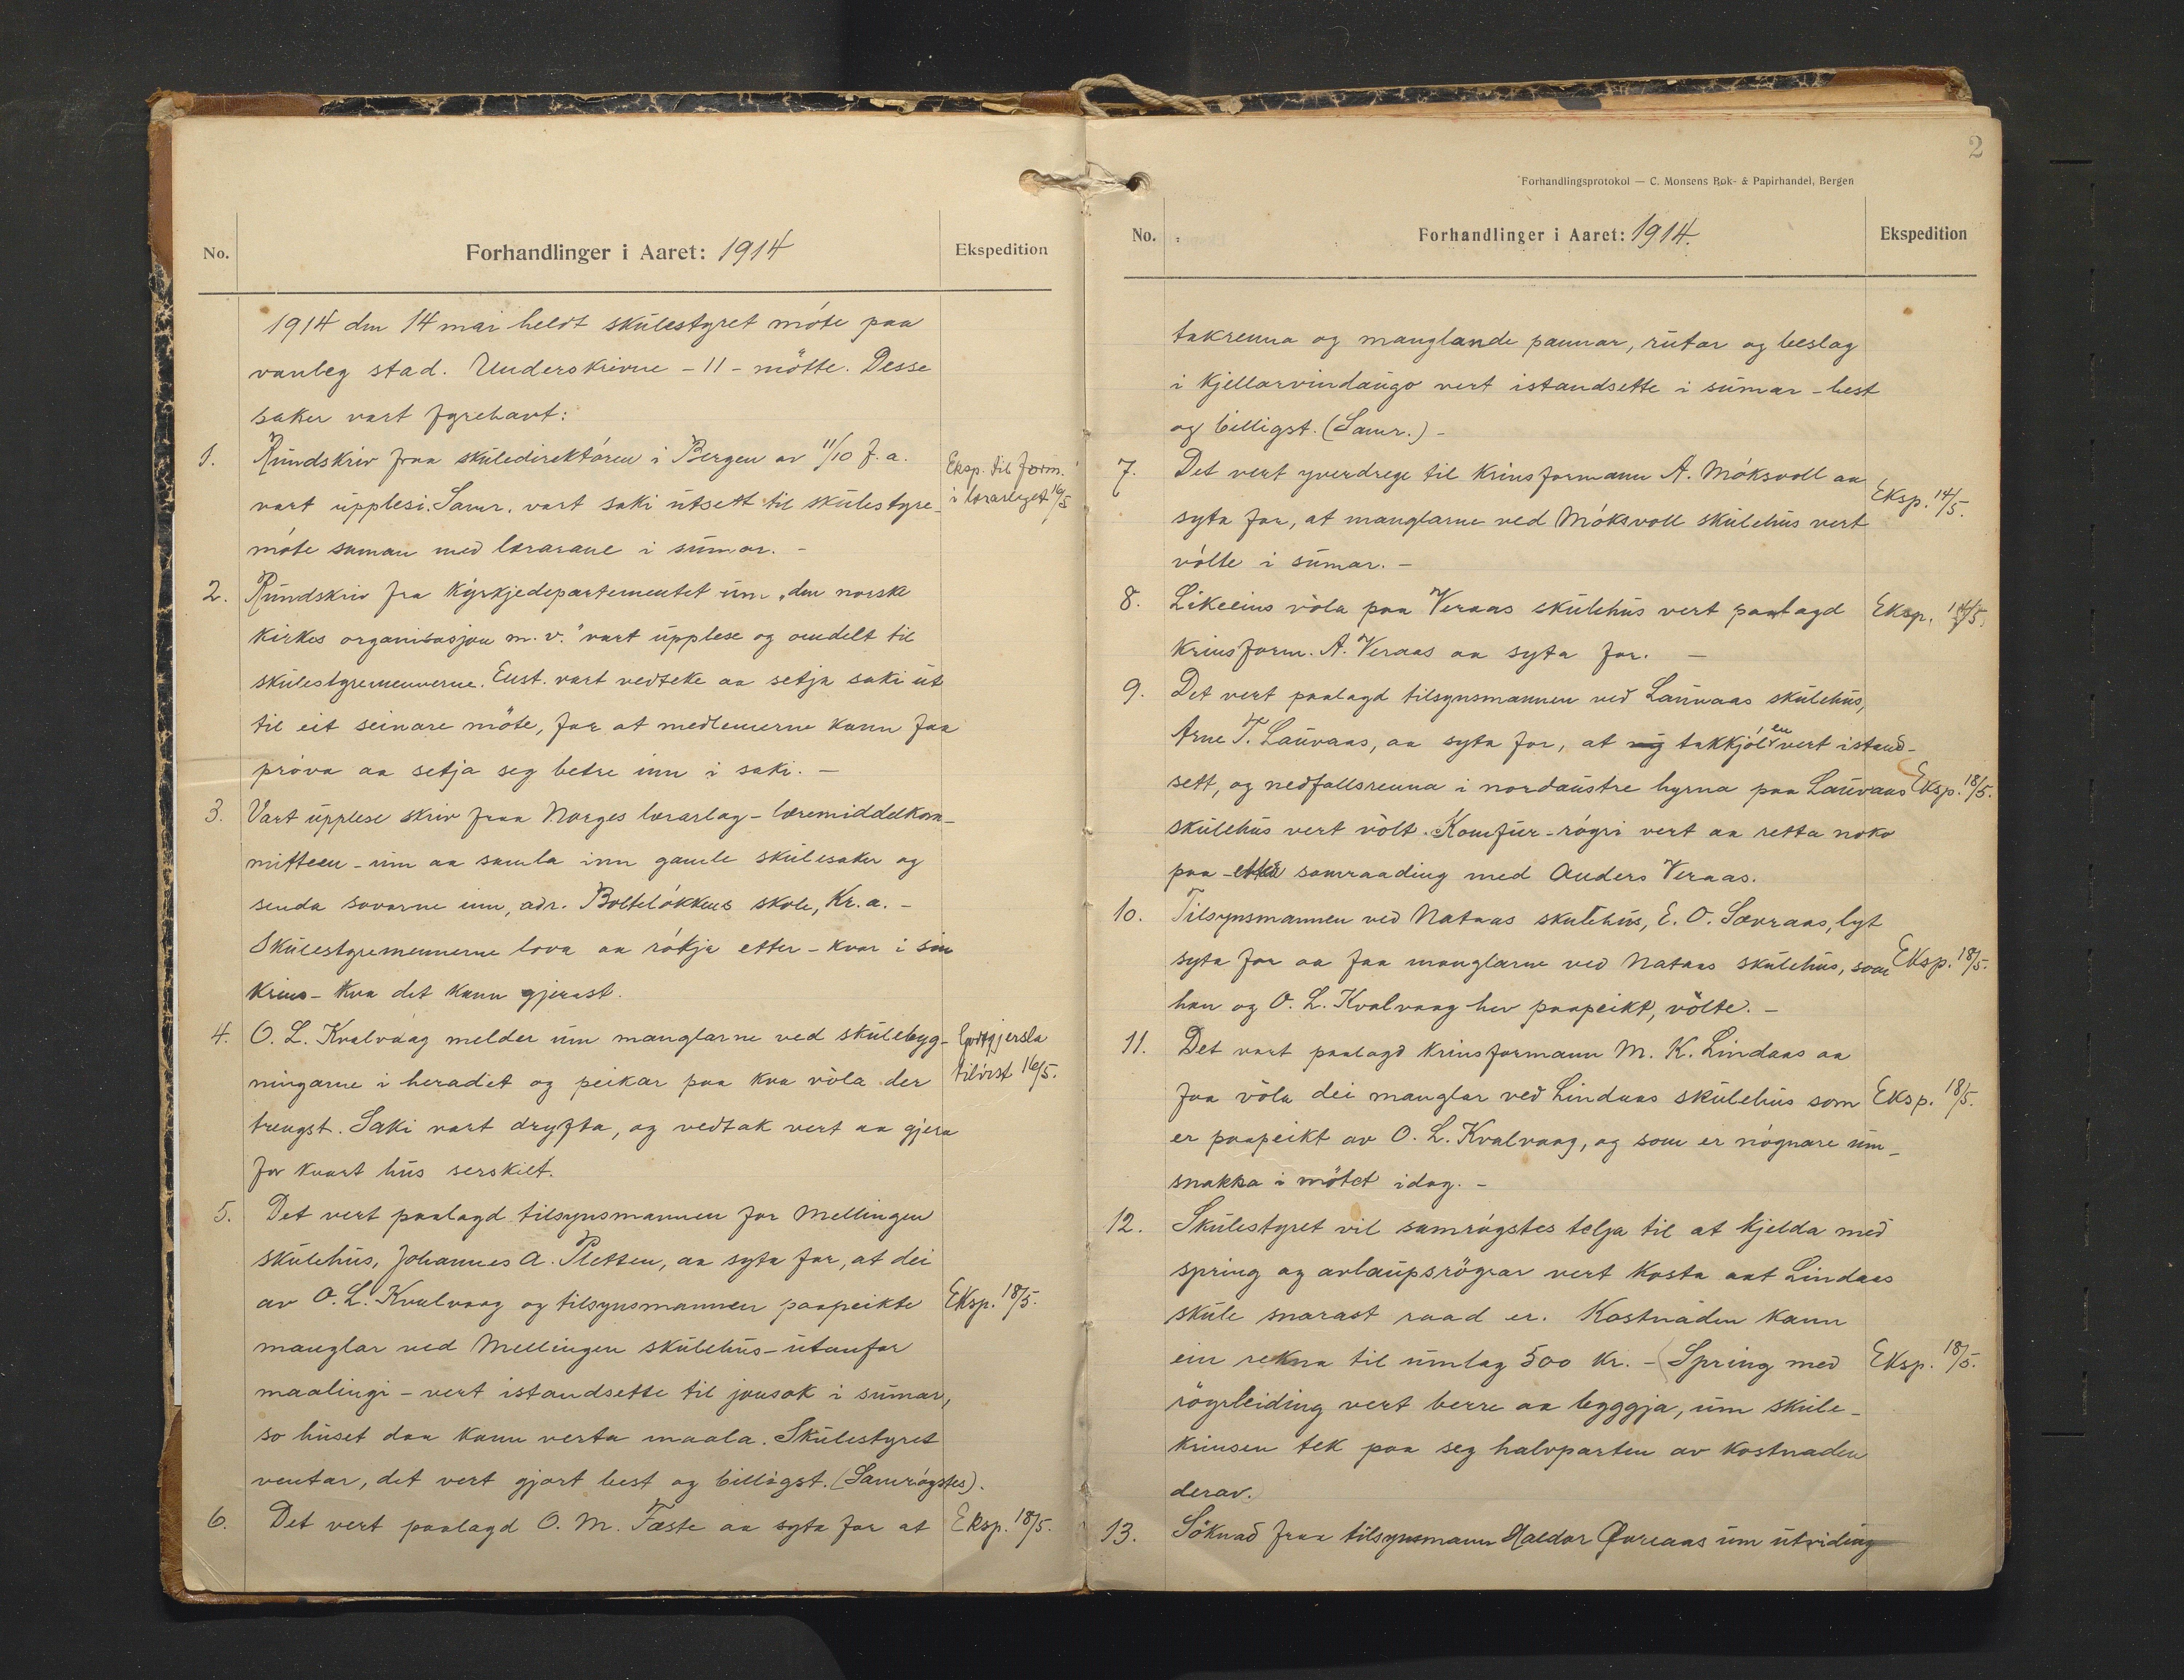 No.
Forhandlinger i Aaret: 1914
Ekspedition
1914 den 14 mai heldt skúlestyret móte paa
vanleg stad. Underskrivne - 11 - mötte. Desse
saker vart fyrehavt:
1. Rúndskriv fraa skúledirektóren i Bergen av 11/10 f. a.
vart úpplesi. Samr. vart saki útsett til skúlestyre-
móte saman med lærarane i súmar. -
Eksp. til form.
i lærarlaget 16/5
2. Rúndskriv fra Kýrkjedepartementet úm „den norske
kirkes organisasjon m. v." vart úpplese og omdelt til
skúlestyremennerne. Eust. vart vedteke aa setja saki út
til eit seinare móte, for at medlemerne kunn faa
próva aa setja seg betre inn i saki. -
3. Vart úpplese skriv fraa Norges lærarlag - læremiddelkom-
mitteen - úm aa samla inn gamle skúlesaker og
senda sovorne inn, adr. Bolteløkkens skole, Kr.a. -
Skúlestyremennerne lova aa rókja etter - kvar i sin
krins - kva det kunn gjerast.
4. O. L. Kvalvaag melder úm manglarne ved skúlebyg-
ningarne i heradet og peikar paa kva vóla der
trengst. Saki vart dryfta, og vedtak vert aa gjera
for kvart hús serskilt.
Godtgjersla
tilvist 16/5.
5. Det vert paalagd tilsynsmannen for Mellingen
skúlehús, Johannes A. Pletten, aa syta for, at dei
av O. L. Kvalvaag og tilsynsmannen paapeikte
manglar ved Mellingen skúlehús - útanfor
maalingi - vert istandsette til jonsok i súmar,
so húset daa kunn verta maala. Skúlestyret
ventar, det vert gjort best og billigst. (Samrøgstes).
Eksp. 18/5.
6. Det vert paalagd O. M. Fæste aa syta for at
Eksp. 18/5.
2
Forhandlingsprotokol — C. Monsens Bok- & Papirhandel, Bergen
No.
Forhandlinger i Aaret: 1914.
Ekspedition
takrenna og manglande pannar, rútar og beslag
i kjellarvindaúgo vert istandsette i súmar - best
og billigst. (Samr.) -
7. Det vert yverdrege til krinsformann A. Móksvoll aa
syta for, at manglarne ved Móksvoll skúlehús vert
vólte i súmar. -
Eksp. 14/5.
8. Likeeins vóla paa Veraas skúlehús vert paalagd
krinsform. A. Veraas aa syta for. -
Eksp. 14/5.
9. Det vert paalagd tilsynsmannen ved Laúvaas skúlehús,
Arne T. Laúvaas, aa syta for, at takkjólen vert istand-
sett, og nedfallsrenna i nordaústre hyrna paa Laúvaas
skúlehús vert vólt. Komfúr-rógri vert aa retta noko
paa - etter samraading med Anders Veraas.
Eksp. 18/5.
10. Tilsynsmannen ved Nataas skulehús, E. O. Sævraas, lyt
syta for aa faa manglarne ved Nataas skúlehús, som
han og O. L. Kvalvaag hev paapeikt, vólte. -
Eksp. 18/5.
11. Det vart paalagd krinsformann M. K. Lindaas aa
faa vóla dei manglar ved Lindaas skúlehús som
er paapeikt av O. L. Kvalvaag, og som er nógnare úm-
snakka i mótet idag. -
Eksp. 18/5.
12. Skúlestyret vil samrógstes telja til at kjelda med
spring og avlaúpsrógrar vert kosta aat Lindaas
skúle snarast raad er. Kostnaden kann
ein rekna til úmlag 500 kr. - (Spring med
rógrleiding vert berre aa byggja, úm skúle-
krinsen tek paa seg halvparten av kostnaden
derav.)
Eksp. 18/5.
13. Söknad fraa tilsynsmann Haldor Øvreaas úm útviding